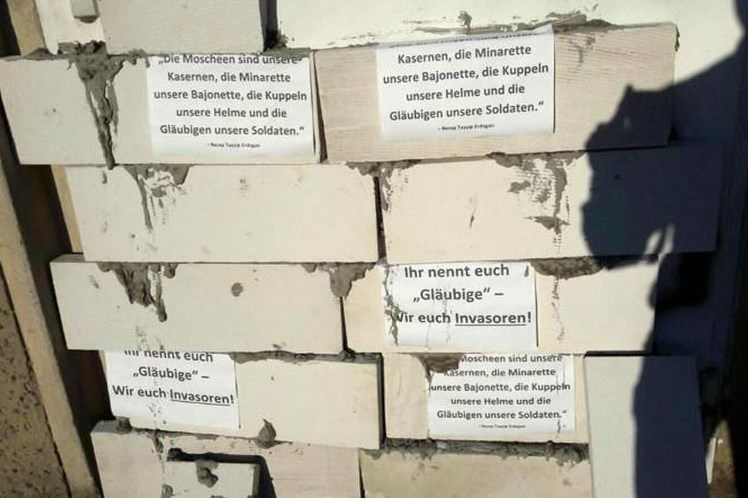 „Die Moscheen sind unsere
Kasernen, die Minarette
unsere Bajonette, die Kuppeln
unsere Helme und die
Gläubigen unsere Soldaten.“
– Recep Tayyip Erdogan
Kasernen, die Minarette
unsere Bajonette, die Kuppeln
unsere Helme und die
Gläubigen unsere Soldaten.“
– Recep Tayyip Erdogan
Ihr nennt euch
„Gläubige“ –
Wir euch Invasoren!
Ihr nennt euch
„Gläubige“ –
Wir euch Invasoren!
Moscheen sind unsere
Kasernen, die Minarette
unsere Bajonette, die Kuppeln
unsere Helme und die
Gläubigen unsere Soldaten.“
– Recep Tayyip Erdogan